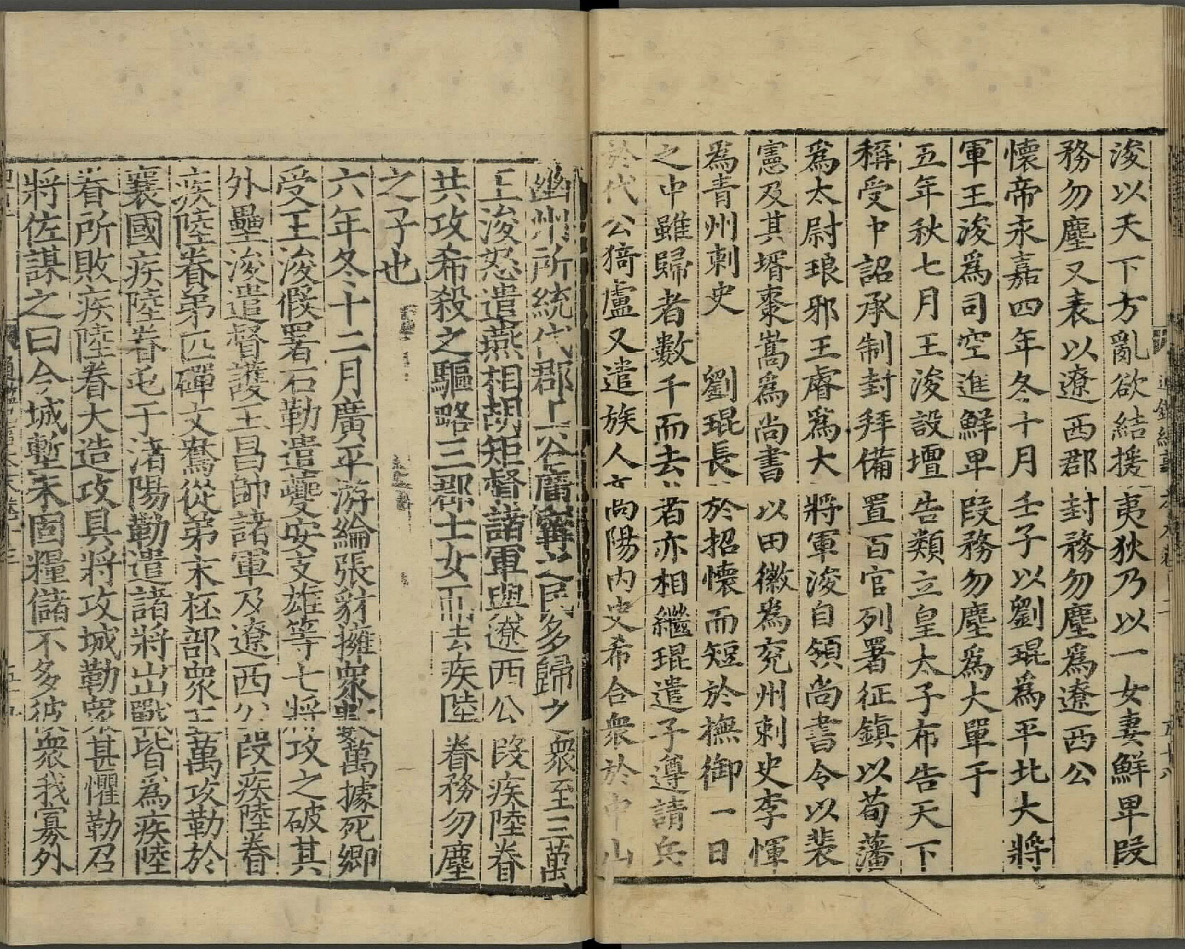 浚以天下方亂欲結援夷狄乃以一女妻鮮卑段
務勿塵又表以遼西郡封務勿塵爲遼西公
懷帝永嘉四年冬十月壬子以劉琨爲平北大將
軍王浚爲司空進鮮卑段務勿塵爲大單于
五年秋七月王浚設壇告類立皇太子布告天下
稱受中詔承制封拜備置百官列署征鎮以荀藩
爲太尉琅邪王睿爲大將軍浚自領尚書令以裴
憲及其壻棗嵩爲尚書以田徽爲兗州刺史李惲
爲青州刺史 劉琨長於招懷而短於撫御一日
之中雖歸者數千而去者亦相繼琨遣子遵請兵
於代公猗盧又遣族人高陽內史希合衆於中山
幽州所統代郡上谷廣甯之民多歸之衆至三萬
王浚怒遣燕相胡矩督諸軍與遼西公段疾陸眷
共攻希殺之驅略三郡士女而去疾陸眷務勿塵
之子也
六年冬十二月廣平游綸張豺擁衆數萬據苑鄉
受王浚假署石勒遣夔安支雄等七將攻之破其
外壘浚遣督護王昌帥諸軍及遼西公段疾陸眷
疾陸眷弟匹磾文鴦從弟末柸部衆五萬攻勒於
襄國疾陸眷屯于渚陽勒遣諸將出戰皆爲疾陸
眷所敗疾陸眷大造攻具將攻城勒衆甚懼勒召
將佐謀之曰今城塹未固糧儲不多彼衆我寡外